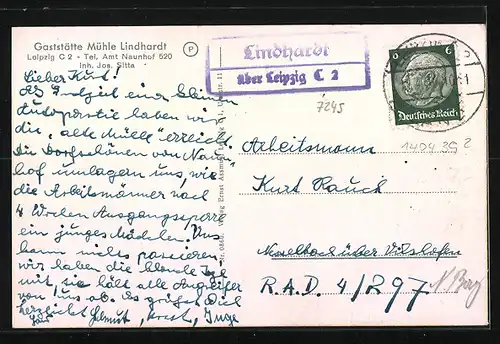 Gaststätte Mühle Lindhardt
Leipzig C 2 - Tel. Amt Naunhof 520
Inh. Jos. Sitta
P
Lindhardt
über Leipzig C 2
6 6
Deutsches Reich
7245
1404 39 2
Lieber Kurt!
Als Endziel einer kleinen
Autopartie haben wir
die „alte Mühle" erreicht.
Die Dorfschönen von Naun-
hof umlagern uns, wie
die Arbeitsmänner nach
4 Wochen Ausgangssperre
ein junges Mädchen! Uns
kann nichts passieren
wir haben die blonde
mit, sie hält alle Angreifer
von uns ab. Es grüßen Dich
herzlichst Helmut, Horst, Inge
Verlag Ernst Assmus, Leipzig
Arbeitsmann
Kurt Rauch
über Vilshofen
R.A.D. 4/297
N/Bay